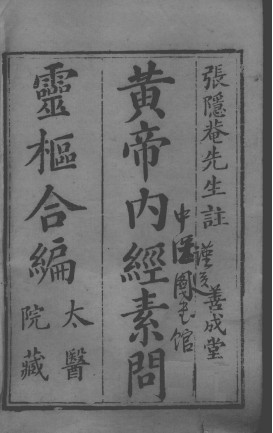 張隱菴先生註
善成堂
黃帝內經素問
中医图书馆
靈樞合編
太醫
院藏